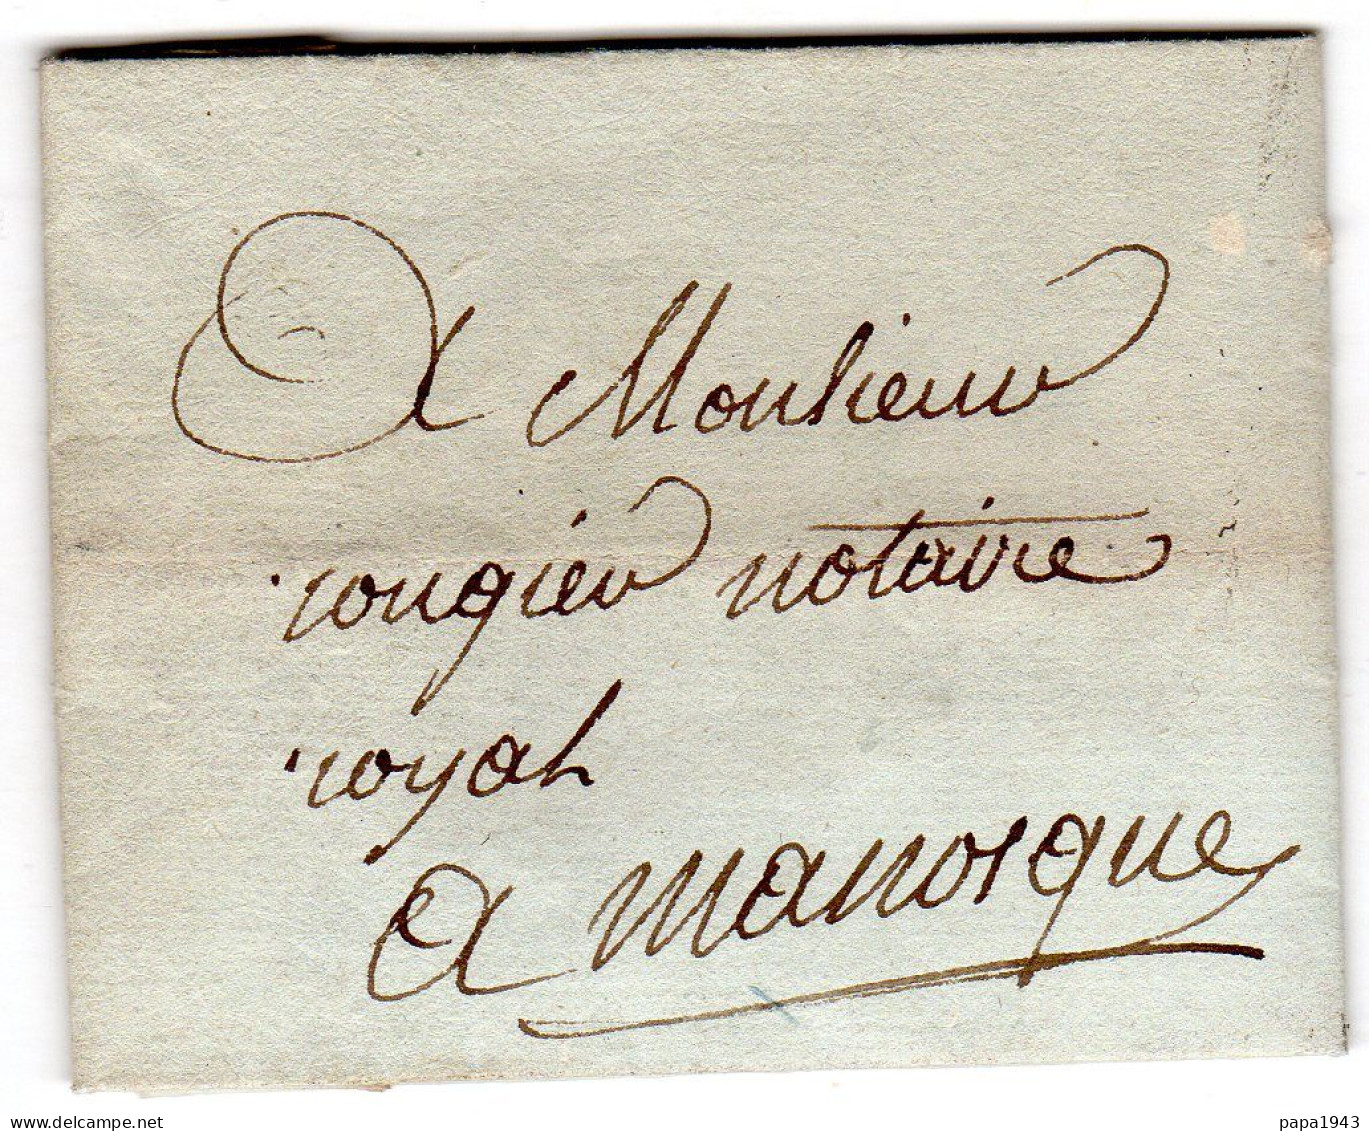 A Monsieur
rougier notaire
royal
A manosque
delcampe.net
papa1943